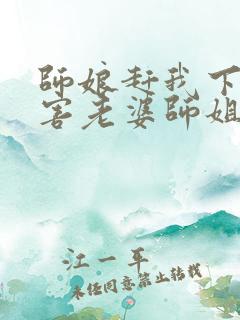 師娘赶我下
害老婆師姐
江一平
未经同意禁止转载